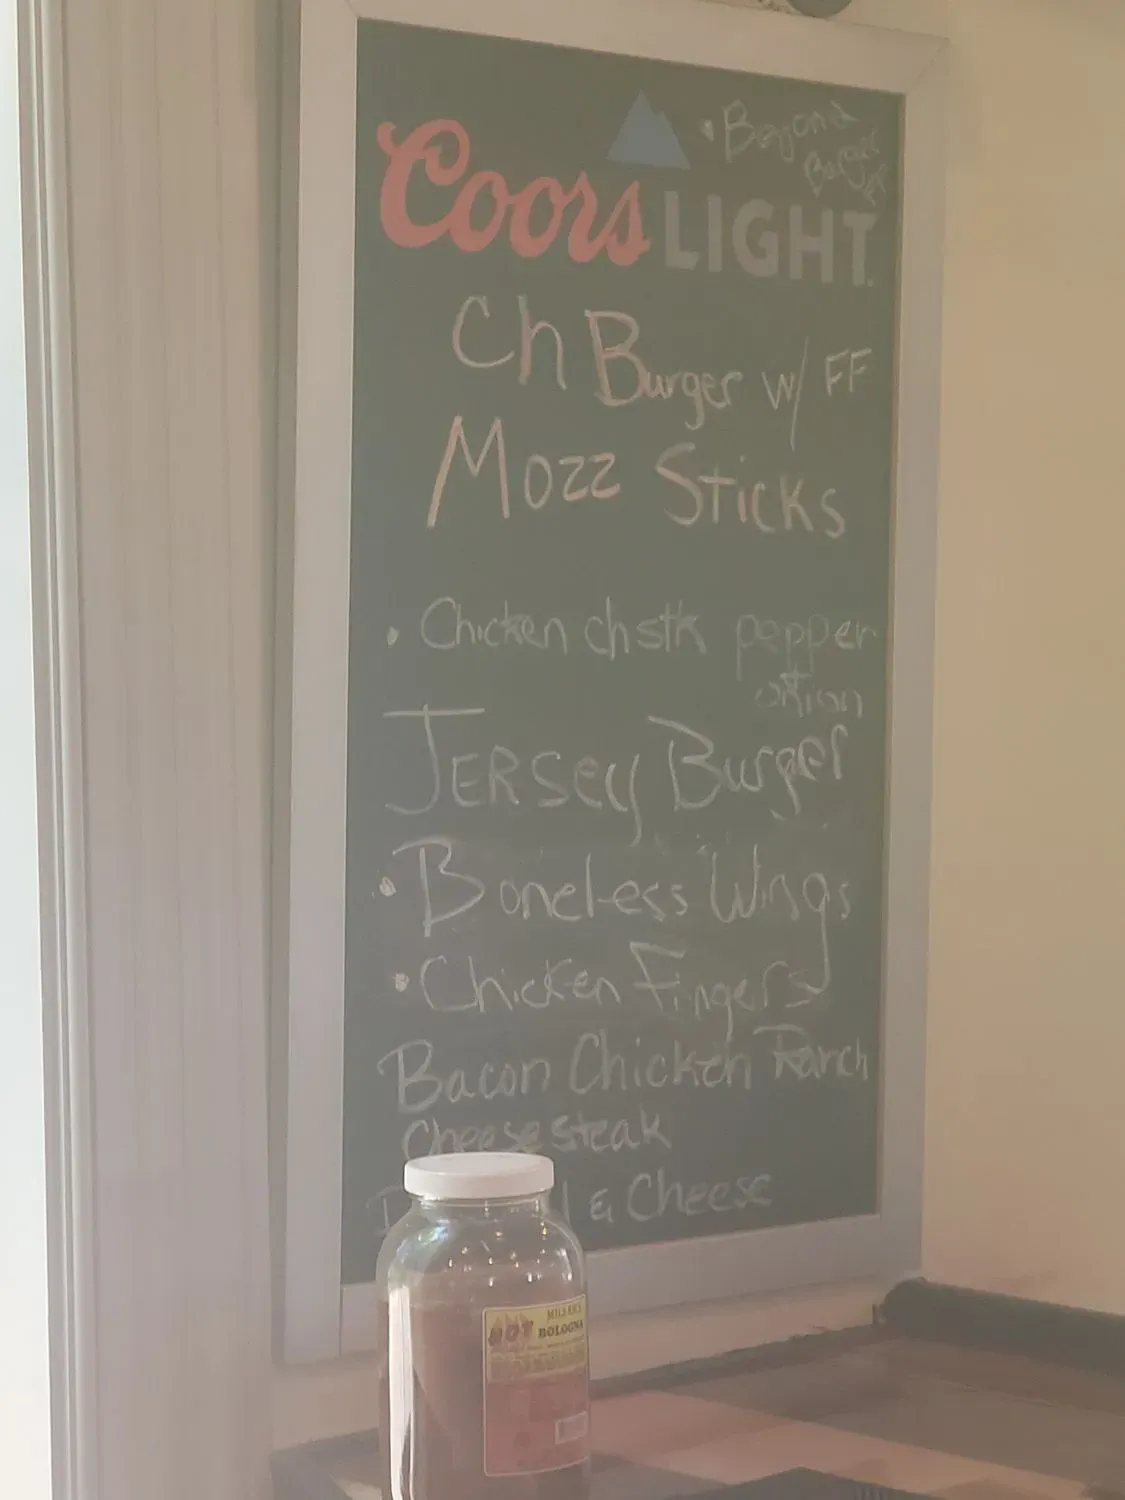 • Beyond
Burger
Coors LIGHT
Ch Burger w/ FF
Mozz Sticks
• Chicken chstk pepper
onion
JERSEY Burger
• Boneless Wings
• Chicken Fingers
Bacon Chicken Ranch
Cheesesteak
& Cheese
MILLER'S
HOT BOLOGNA